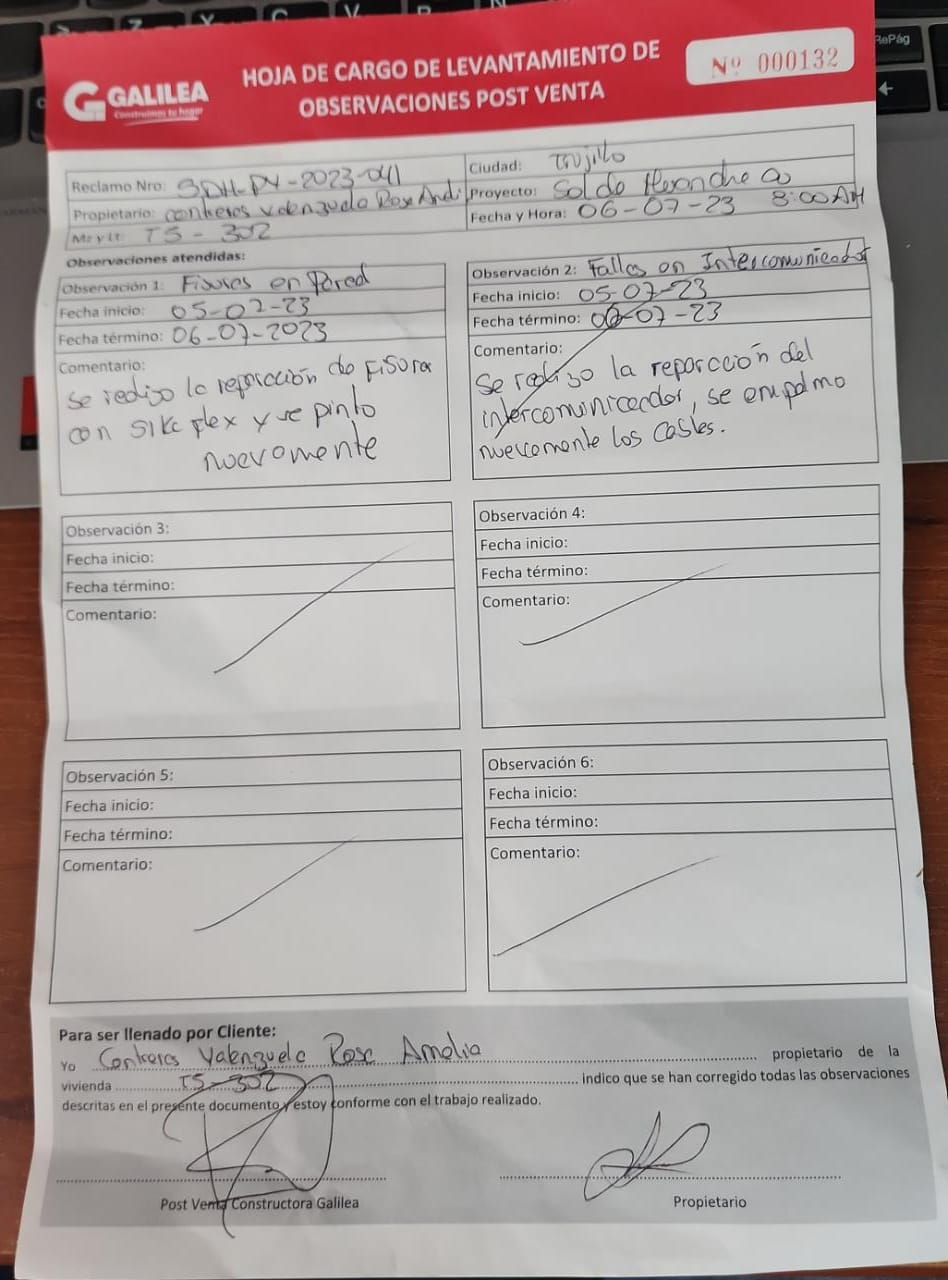 GALILEA
Construimos tu hogar
HOJA DE CARGO DE LEVANTAMIENTO DE
OBSERVACIONES POST VENTA
Nº 000132
Reclamo Nro: SDH-PV-2023-041
Ciudad: Trujillo
Propietario: Contreras Valenzuela Rosa
Proyecto: Sol de Huanchaco
Mz y Lt: T5 - 302
Fecha y Hora: 06-07-23 8:00 AM
Observaciones atendidas:
Observación 1: Fisuras en Pared
Fecha inicio: 05-07-23
Fecha término: 06-07-2023
Comentario:
se realizo la reparación de Fisura
con sika flex y se pinto
nuevamente
Observación 2: Fallas en Intercomunicador
Fecha inicio: 05-07-23
Fecha término: 06-07-23
Comentario:
Se realizo la reparacción del
intercomunicador, se empalmo
nuevamente los cables.
Observación 3:
Fecha inicio:
Fecha término:
Comentario:
Observación 4:
Fecha inicio:
Fecha término:
Comentario:
Observación 5:
Fecha inicio:
Fecha término:
Comentario:
Observación 6:
Fecha inicio:
Fecha término:
Comentario:
Para ser llenado por Cliente:
Yo Contreras Valenzuela Rosa Amelia propietario de la
vivienda T5-302 indico que se han corregido todas las observaciones
descritas en el presente documento y estoy conforme con el trabajo realizado.
Post Venta Constructora Galilea
Propietario
RePág